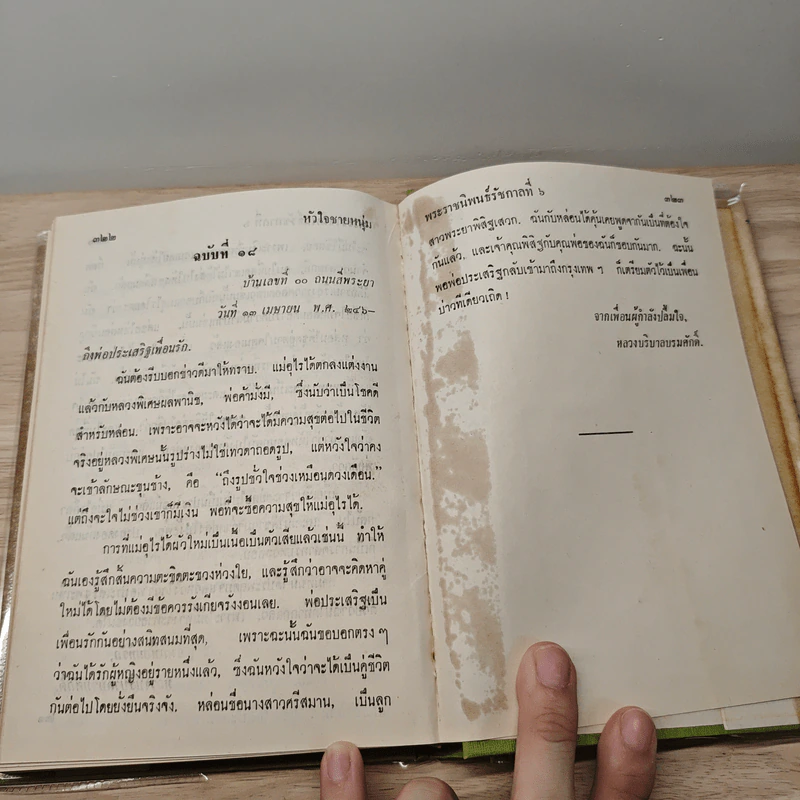 ๓๒๒
หัวใจชายหนุ่ม
ฉบับที่ ๑๘
บ้านเลขที่ ๐๐ ถนนสี่พระยา
วันที่ ๑๓ เมษายน พ.ศ. ๒๔๖-
ถึงพ่อประเสริฐเพื่อนรัก.
ฉันต้องรีบบอกข่าวดีมาให้ทราบ. แม่อุไรได้ตกลงแต่งงาน
แล้วกับหลวงพิเศษผลพานิช, พ่อค้ามั่งมี, ซึ่งนับว่าเป็นโชคดี
สำหรับหล่อน. เพราะอาจจะหวังได้ว่าจะได้มีความสุขต่อไปในชีวิต
จริงอยู่หลวงพิเศษนั้นรูปร่างไม่ใช่เทวดาถอดรูป, แต่หวังใจว่าคง
จะเข้าลักษณะขุนช้าง, คือ “ถึงรูปชั่วใจช่วงเหมือนดวงเดือน.”
แต่ถึงจะใจไม่ช่วงเขาก็มีเงิน พอที่จะซื้อความสุขให้แม่อุไรได้.
การที่แม่อุไรได้ผัวใหม่เป็นเนื้อเป็นตัวเสียแล้วเช่นนี้ ทำให้
ฉันเองรู้สึกสิ้นความตะขิดตะขวงห่วงใย, และรู้สึกว่าอาจจะคิดหาคู่
ใหม่ได้โดยไม่ต้องมีข้อควรรังเกียจรังงอนเลย. พ่อประเสริฐเป็น
เพื่อนรักกันอย่างสนิทสนมที่สุด, เพราะฉะนั้นฉันขอบอกตรง ๆ
ว่าฉันได้รักผู้หญิงอยู่รายหนึ่งแล้ว, ซึ่งฉันหวังใจว่าจะได้เป็นคู่ชีวิต
กันต่อไปโดยยั่งยืนจริงจัง. หล่อนชื่อนางสาวศรีสมาน, เป็นลูก
พระราชนิพนธ์รัชกาลที่ ๖
๓๒๓
สาวพระยาพิสิฐเสวก. ฉันกับหล่อนได้คุ้นเคยพูดจากันเป็นที่ต้องใจ
กันแล้ว, และเจ้าคุณพิสิฐกับคุณพ่อของฉันก็ชอบกันมาก. ฉะนั้น
พอพ่อประเสริฐกลับเข้ามาถึงกรุงเทพ ๆ ก็เตรียมตัวไว้เป็นเพื่อน
บ่าวทีเดียวเถิด !
จากเพื่อนผู้กำลังปลื้มใจ,
หลวงบริบาลบรมศักดิ์.